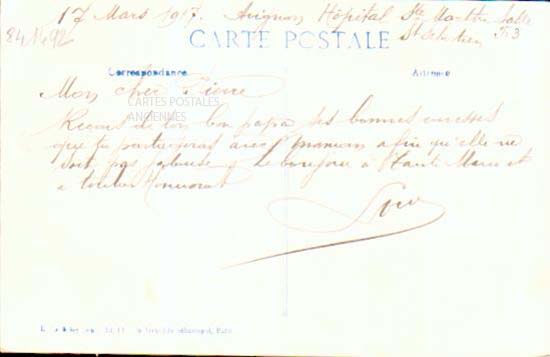 17 Mars 1917. Avignon Hôpital Ste Marthe Salle
St Sebastien N 3
84 N 92
CARTE POSTALE
Correspondance
Adresse
Mon cher Pierre
CARTES POSTALES
ANCIENNES
Reçois de ton bon papa ses bonnes caresses
que tu partageras avec maman afin qu'elle ne
soit pas jalouse Le bonjour à Tante Marie et
a tonton Honorat